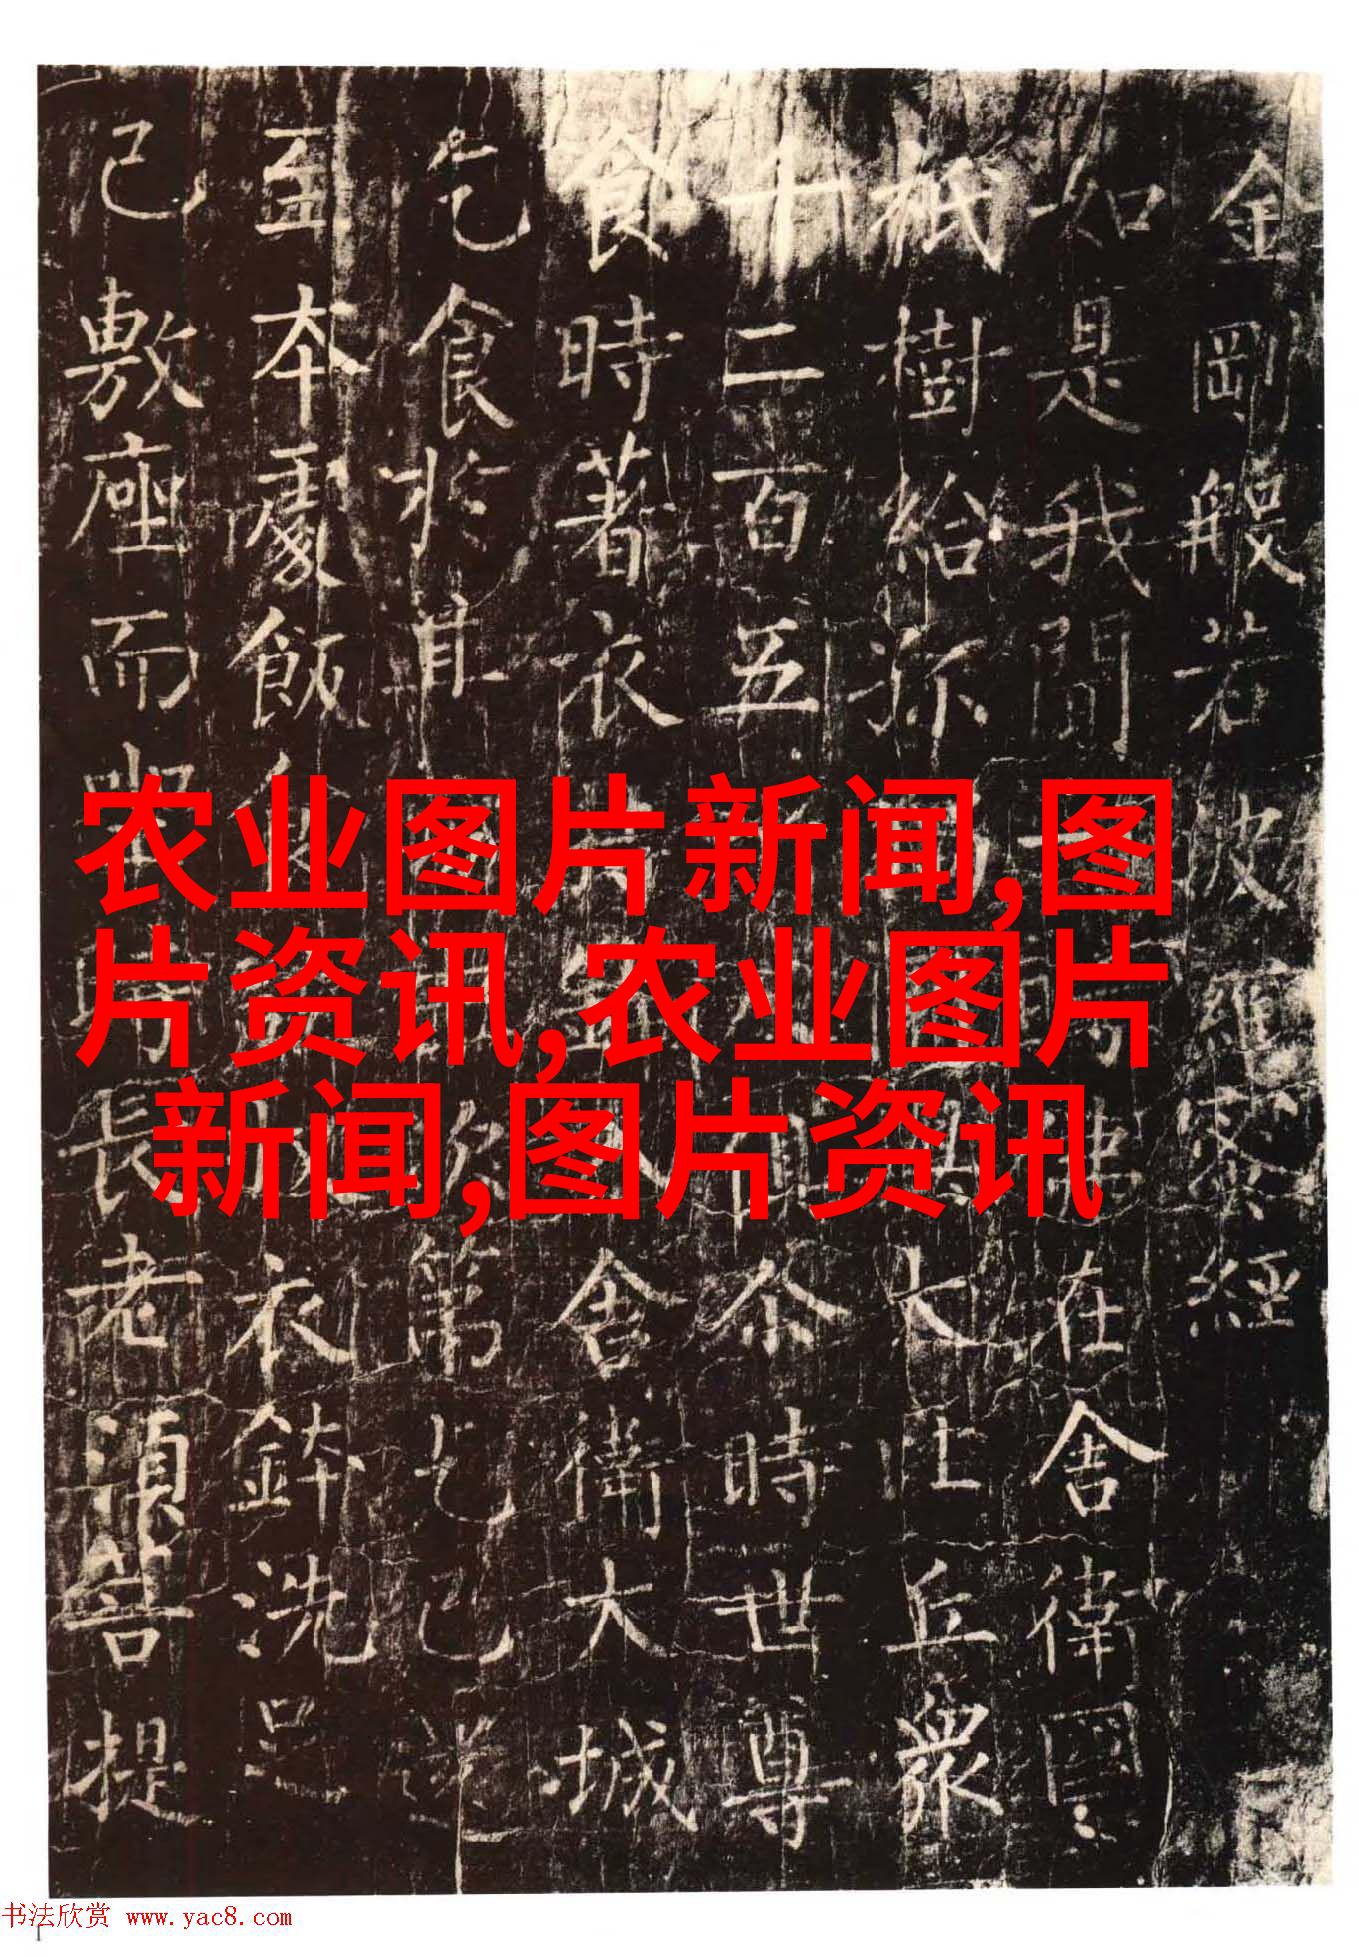 金剛般若波羅蜜經
如是我聞一時佛在舍衛國
祇樹給孤獨園與大比丘眾
千二百五十人俱尒時世尊
食時著衣持鉢入舍衛大城
乞食於其城中次第乞已還
至本處飯食訖收衣鉢洗足
已敷座而坐時長老須菩提
农业图片新闻,图
片资讯,农业图片
新闻,图片资讯
书法欣赏 www.yac8.com